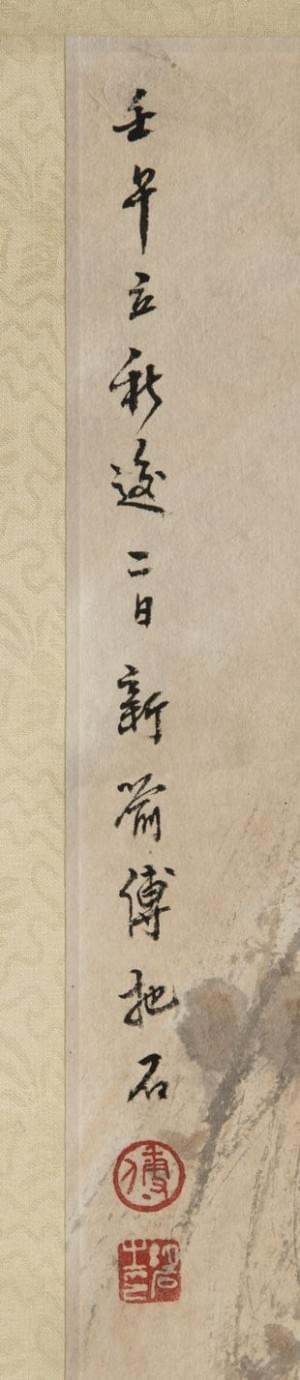 壬午立秋後二日新喻傅抱石
傅